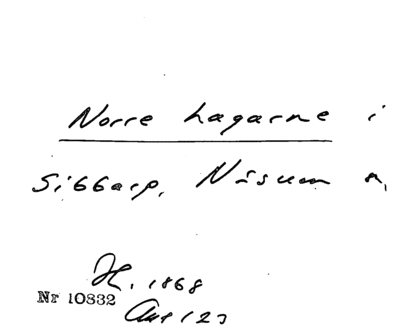 Norre Lagarne i
Sibbarp, Näsum s,
H. 1868
Nr 10832
123